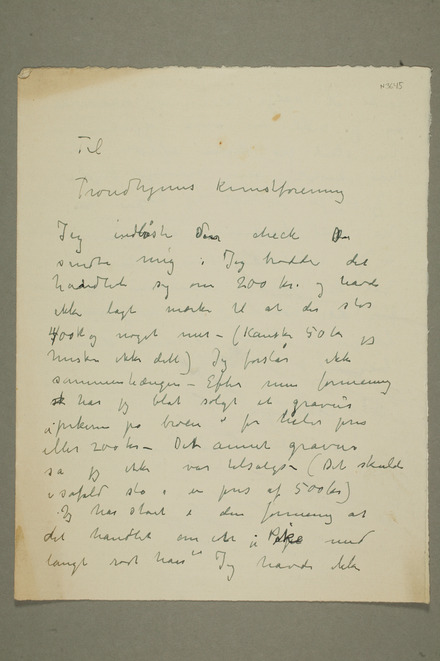 N 3045
Til
Trondhjems Kunstforening
Jeg indløste Den check De
sendte mig i. Jeg trodde det
handlet sig om 200 kr. og havde
ikke lagt mærke til at der stod
400 kr og noget mer – (Kanske 50 kr jeg
husker ikke dett) Jeg forstår ikke
sammenhængen – Efter min formening
har jeg blot solgt et gravure
"pikerne på broen" for pris
eller 200 kr – Det annet gravure
sa jeg ikke var tilsalgs – (Det skulde
isåfald stå i en pris af 500 kr)
Jeg har stået i den formening at
det handlet om et "Pike med
langt rødt hår" Jeg havde ikke